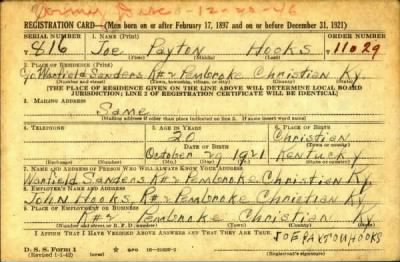 12-28-46
REGISTRATION CARD—(Men born on or after February 17, 1897 and on or before December 31, 1921)
SERIAL NUMBER 1. NAME (Print) ORDER NUMBER
T 816 Joe Payton Hooks 11029
2. PLACE OF RESIDENCE (Print)
c/o Warfield Sanders R#2 Pembroke Christian Ky.
[THE PLACE OF RESIDENCE GIVEN ON THE LINE ABOVE WILL DETERMINE LOCAL BOARD
JURISDICTION; LINE 2 OF REGISTRATION CERTIFICATE WILL BE IDENTICAL]
3. MAILING ADDRESS
Same
[Mailing address if other than place indicated on line 2. If same insert word same]
4. TELEPHONE 5. AGE IN YEARS 6. PLACE OF BIRTH
20 Christian
DATE OF BIRTH
October 29 1921 Kentucky
(Exchange) (Number) (Mo.) (Day) (Yr.) (State or country)
7. NAME AND ADDRESS OF PERSON WHO WILL ALWAYS KNOW YOUR ADDRESS
Warfield Sanders R#2 Pembroke Christian Ky
8. EMPLOYER'S NAME AND ADDRESS
John Hooks R#2 Pembroke Christian Ky
9. PLACE OF EMPLOYMENT OR BUSINESS
R#2 Pembroke Christian Ky
(Number and street or R. F. D. number) (Town) (County) (State)
I AFFIRM THAT I HAVE VERIFIED ABOVE ANSWERS AND THAT THEY ARE TRUE.
D. S. S. Form 1 GPO
(Revised 1-1-42) (over)
JOE PAYTON HOOKS